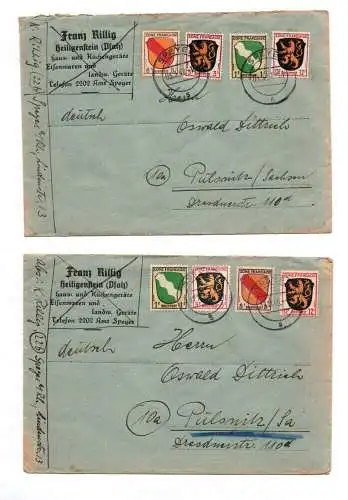 Franz Rillig
Heiligenstein (Pfalz)
Haus- und Küchengeräte
Eisenwaren und
landw. Geräte
Telefon 2202 Amt Speyer
K. Rillig (22b) Speyer a/Rh., Lindenstr. 13
ZONE FRANÇAISE
ZONE FRANÇAISE
ZONE FRANÇAISE
ZONE FRANÇAISE
deutsch
Herrn
Oswald Dittrich
10a
Pulsnitz/Sachsen
Dresdnerstr. 110a
Franz Rillig
Heiligenstein (Pfalz)
Haus- und Küchengeräte
Eisenwaren und
landw. Geräte
Telefon 2202 Amt Speyer
Abs. K. Rillig (22b) Speyer a/Rh., Lindenstr. 13
ZONE FRANÇAISE
ZONE FRANÇAISE
ZONE FRANÇAISE
ZONE FRANÇAISE
deutsch
Herrn
Oswald Dittrich
10a
Pulsnitz/Sa
Dresdnerstr. 110a